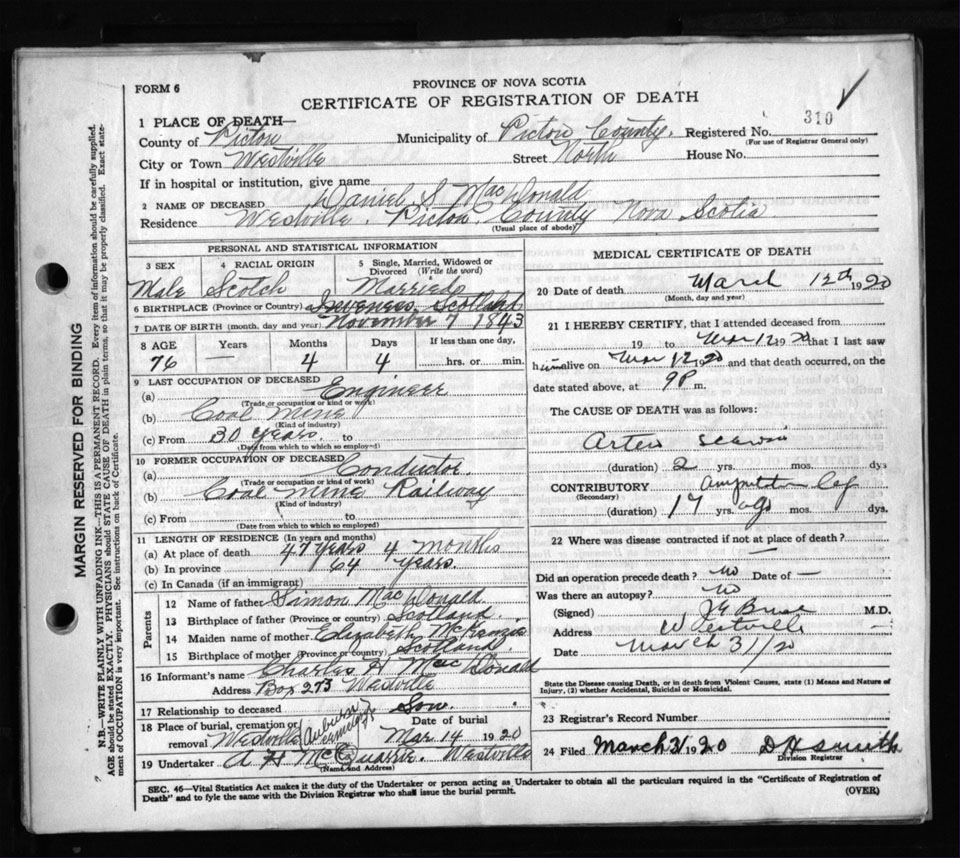 FORM 6
PROVINCE OF NOVA SCOTIA
CERTIFICATE OF REGISTRATION OF DEATH
310
1 PLACE OF DEATH—
County of Pictou Municipality of Pictou County. Registered No.
(For use of Registrar General only)
City or Town Westville Street North House No.
If in hospital or institution, give name
2 NAME OF DECEASED Daniel S MacDonald
Residence Westville, Pictou, County Nova Scotia
(Usual place of abode)
PERSONAL AND STATISTICAL INFORMATION
3 SEX 4 RACIAL ORIGIN 5 Single, Married, Widowed or Divorced (Write the word)
Male Scotch Married
6 BIRTHPLACE (Province or Country) Inverness, Scotland
7 DATE OF BIRTH (month, day and year) November 7 1843
8 AGE Years Months Days If less than one day,
76 — 4 4 hrs. or min.
9 LAST OCCUPATION OF DECEASED
(a) Engineer
(Trade or occupation or kind or work)
(b) Coal Mine
(Kind of industry)
(c) From 30 years. to
(Date from which to which so employed)
10 FORMER OCCUPATION OF DECEASED
(a) Conductor.
(Trade or occupation or kind of work)
(b) Coal Mine Railway
(Kind of industry)
(c) From to
(Date from which to which so employed)
11 LENGTH OF RESIDENCE (In years and months)
(a) At place of death 47 years 4 months
(b) In province 64 years.
(c) In Canada (if an immigrant)
Parents
12 Name of father Simon MacDonald
13 Birthplace of father (Province or country) Scotland.
14 Maiden name of mother Elizabeth McKenzie
15 Birthplace of mother (Province or country) Scotland.
16 Informant's name Charles H MacDonald
Address Box 273 Westville
17 Relationship to deceased Son.
18 Place of burial, cremation or removal Westville Auburn Cemetery
Date of burial Mar 14 1920
19 Undertaker A H McQuarrie. Westville
(Name and Address)
MEDICAL CERTIFICATE OF DEATH
20 Date of death March 12th 1920
(Month, day and year)
21 I HEREBY CERTIFY, that I attended deceased from
19 to Mar 12 1920 that I last saw
him alive on Mar 12 1920 and that death occurred, on the
date stated above, at 9 P m.
The CAUSE OF DEATH was as follows:
Arterio
(duration) 2 yrs. mos. dys
CONTRIBUTORY Amputation leg
(Secondary)
(duration) 17 yrs. ago mos. dys.
22 Where was disease contracted if not at place of death?
—
Did an operation precede death? No Date of —
Was there an autopsy? No
(Signed) M.D.
Address Westville
Date March 31/20
State the Disease causing Death, or in death from Violent Causes, state (1) Means and Nature of Injury, (2) whether Accidental, Suicidal or Homicidal.
23 Registrar's Record Number
24 Filed March 31 1920 D H Smith
Division Registrar
SEC. 46—Vital Statistics Act makes it the duty of the Undertaker or person acting as Undertaker to obtain all the particulars required in the "Certificate of Registration of
Death" and to fyle the same with the Division Registrar who shall issue the burial permit.
(OVER)
MARGIN RESERVED FOR BINDING
N.B.—WRITE PLAINLY WITH UNFADING INK—THIS IS A PERMANENT RECORD. Every item of information should be carefully supplied.
AGE should be stated EXACTLY. PHYSICIANS should STATE CAUSE OF DEATH in plain terms, so that it may be properly classified. Exact state-
ment of OCCUPATION is very important. See instructions on back of Certificate.